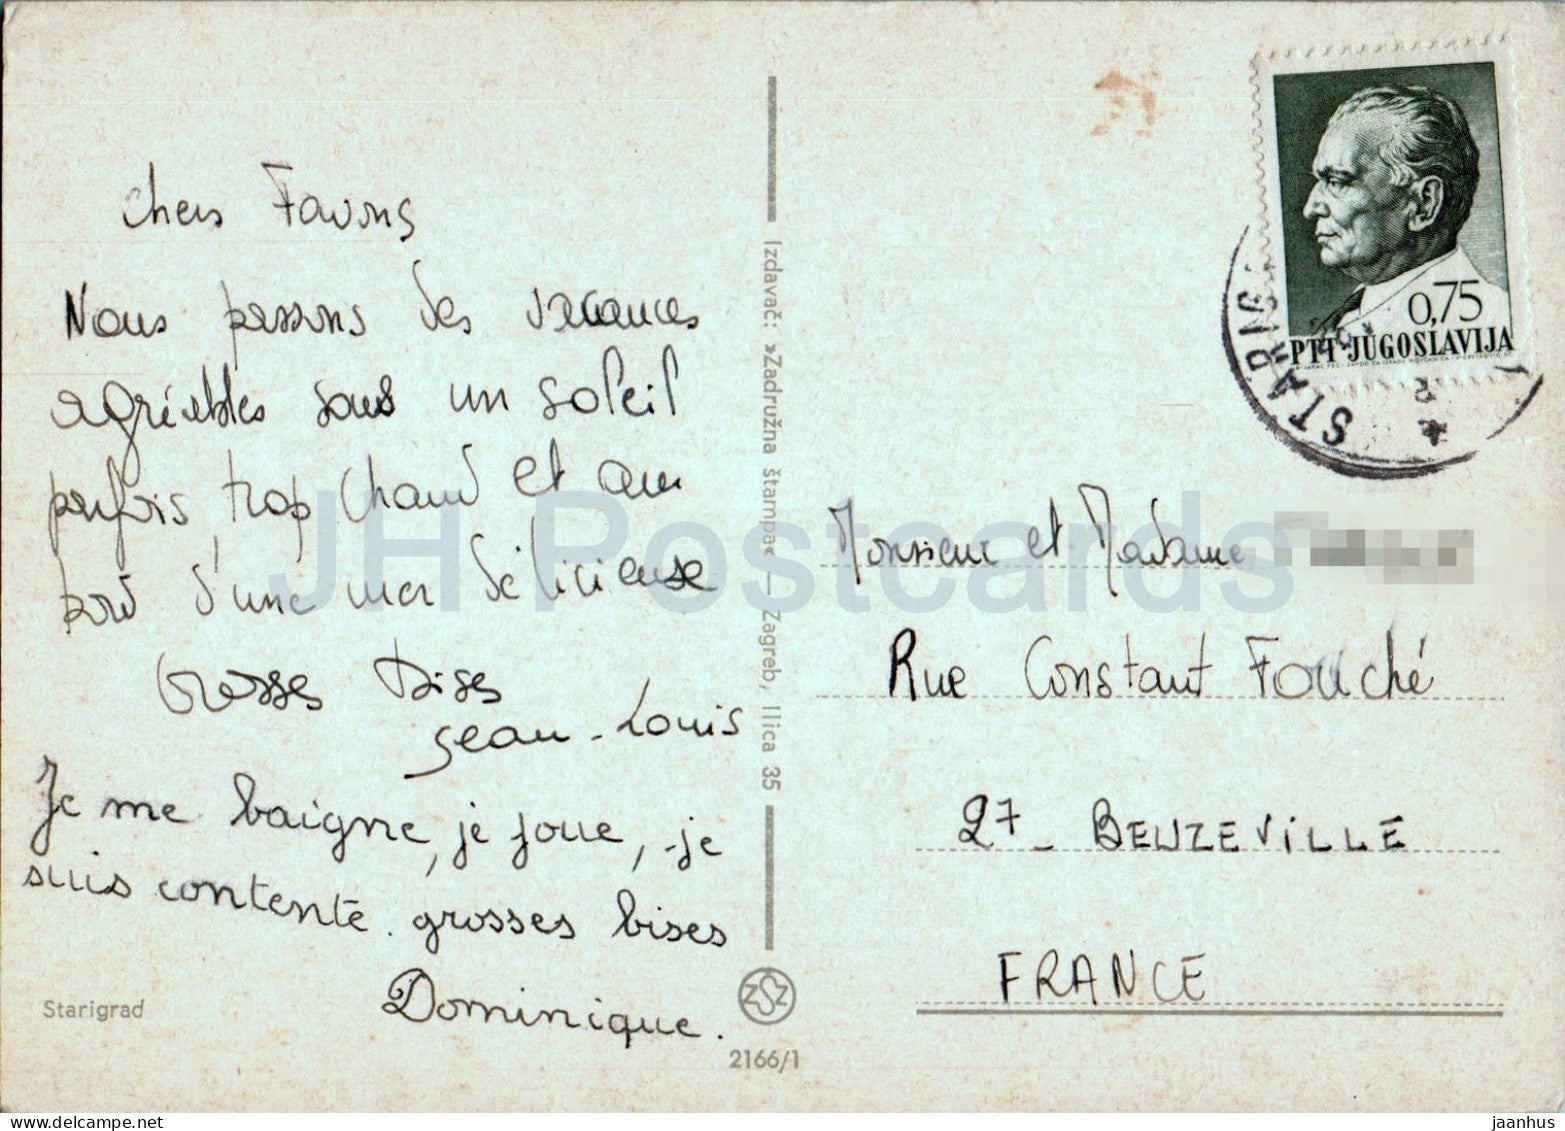 Chers Favris
Nous passons des vacances
agréables sous un soleil
parfois trop chaud et au
bord d'une mer délicieuse
Grosses bises
Jean-Louis
Je me baigne, je joue, je
suis contente. grosses bises
Dominique.
Starigrad
Izdavač: »Zadružna štampa« — Zagreb, Ilica 35
ZSZ
2166/1
0,75
PTT JUGOSLAVIJA
STARIG
Monsieur et Madame
Rue Constant Fouché
27 - BEUZEVILLE
FRANCE
JH Postcards
delcampe.net
jaanhus